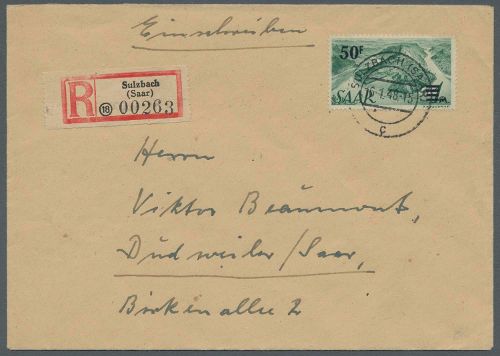 Einschreiben
50F
SAAR
R
Sulzbach
(Saar)
18 00263
SULZBACH (SAAR)
6.1.48-15
c
Herrn
Viktor Beaumont,
Dudweiler/Saar,
Birkenallee 2